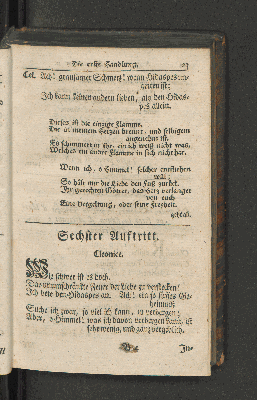 Die erste Handlung. 123
Cel. Ach! grausamer Schmertz! wenn Hidaspes un-
getreu ist;
Ich kann keinen andern lieben, als den Hidas-
pes allein.
Dieses ist die einzige Flamme,
Die in meinem Hertzen brennt, und selbigem
angenehm ist.
Es schimmert in ihr, ein ich weiß nicht was,
Welches ein andre Flamme in sich nicht hat.
Wenn ich, o Himmel! solcher entfliehen
will;
So hält mir die Liebe den Fuß zurück.
Ihr gerechten Götter, das Hertz verlanget
von euch
Eine Vergeltung, oder seine Freyheit.
gehet ab.
Sechster Auftritt.
Cleonice.
Wie schwer ist es doch,
Das unumschränckte Feuer der Liebe zu verstecken!
Ich bete den Hidaspes an. Ach! ein so süsses Ge-
heimniß
Suche ich zwar, so viel ich kann, zu verbergen;
Aber, o Himmel! was ich davon verbergen kann, ist
sehr wenig, und gantz vergeblich.